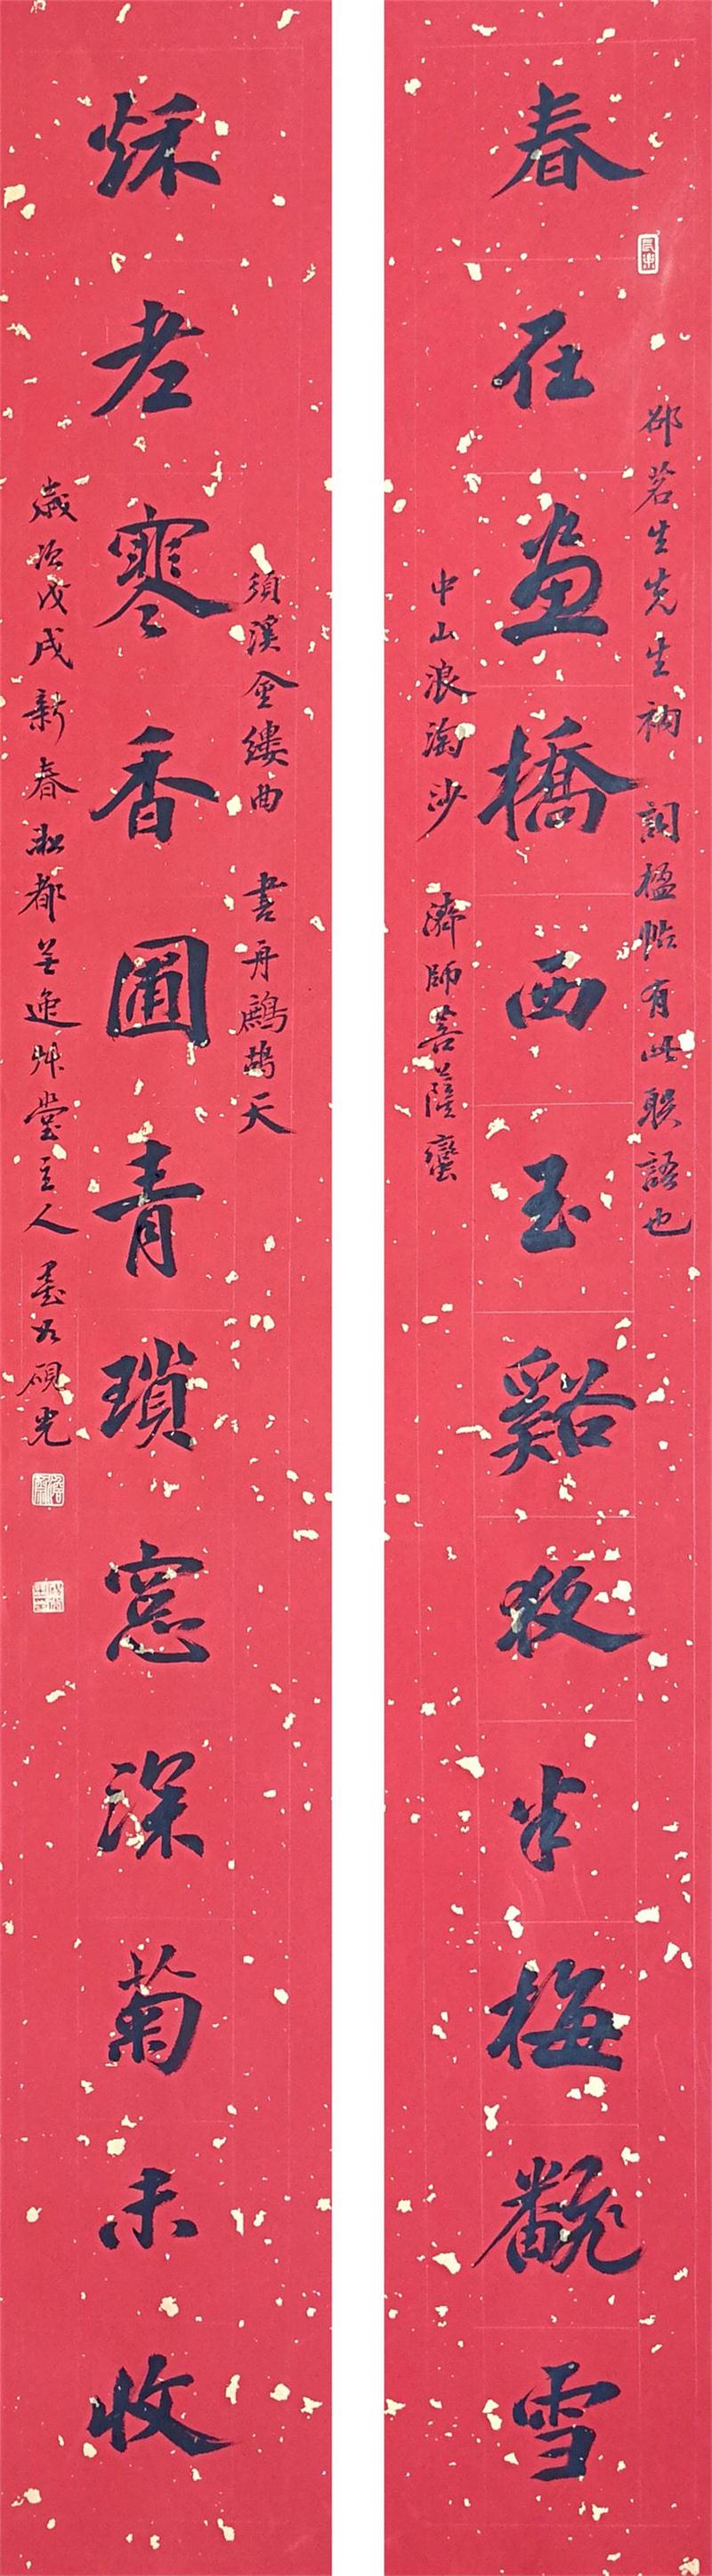 邵茗生先生衲詞楹帖有此聯語也
春在畫橋西玉谿夜半梅飜雪
中山浪淘沙 濟師菩薩蠻
須溪金縷曲 書舟鷓鴣天
秌老寒香圃青瑣窓深菊未收
歲次戊戌新春淞都芸逸艸堂主人 墨如硯光